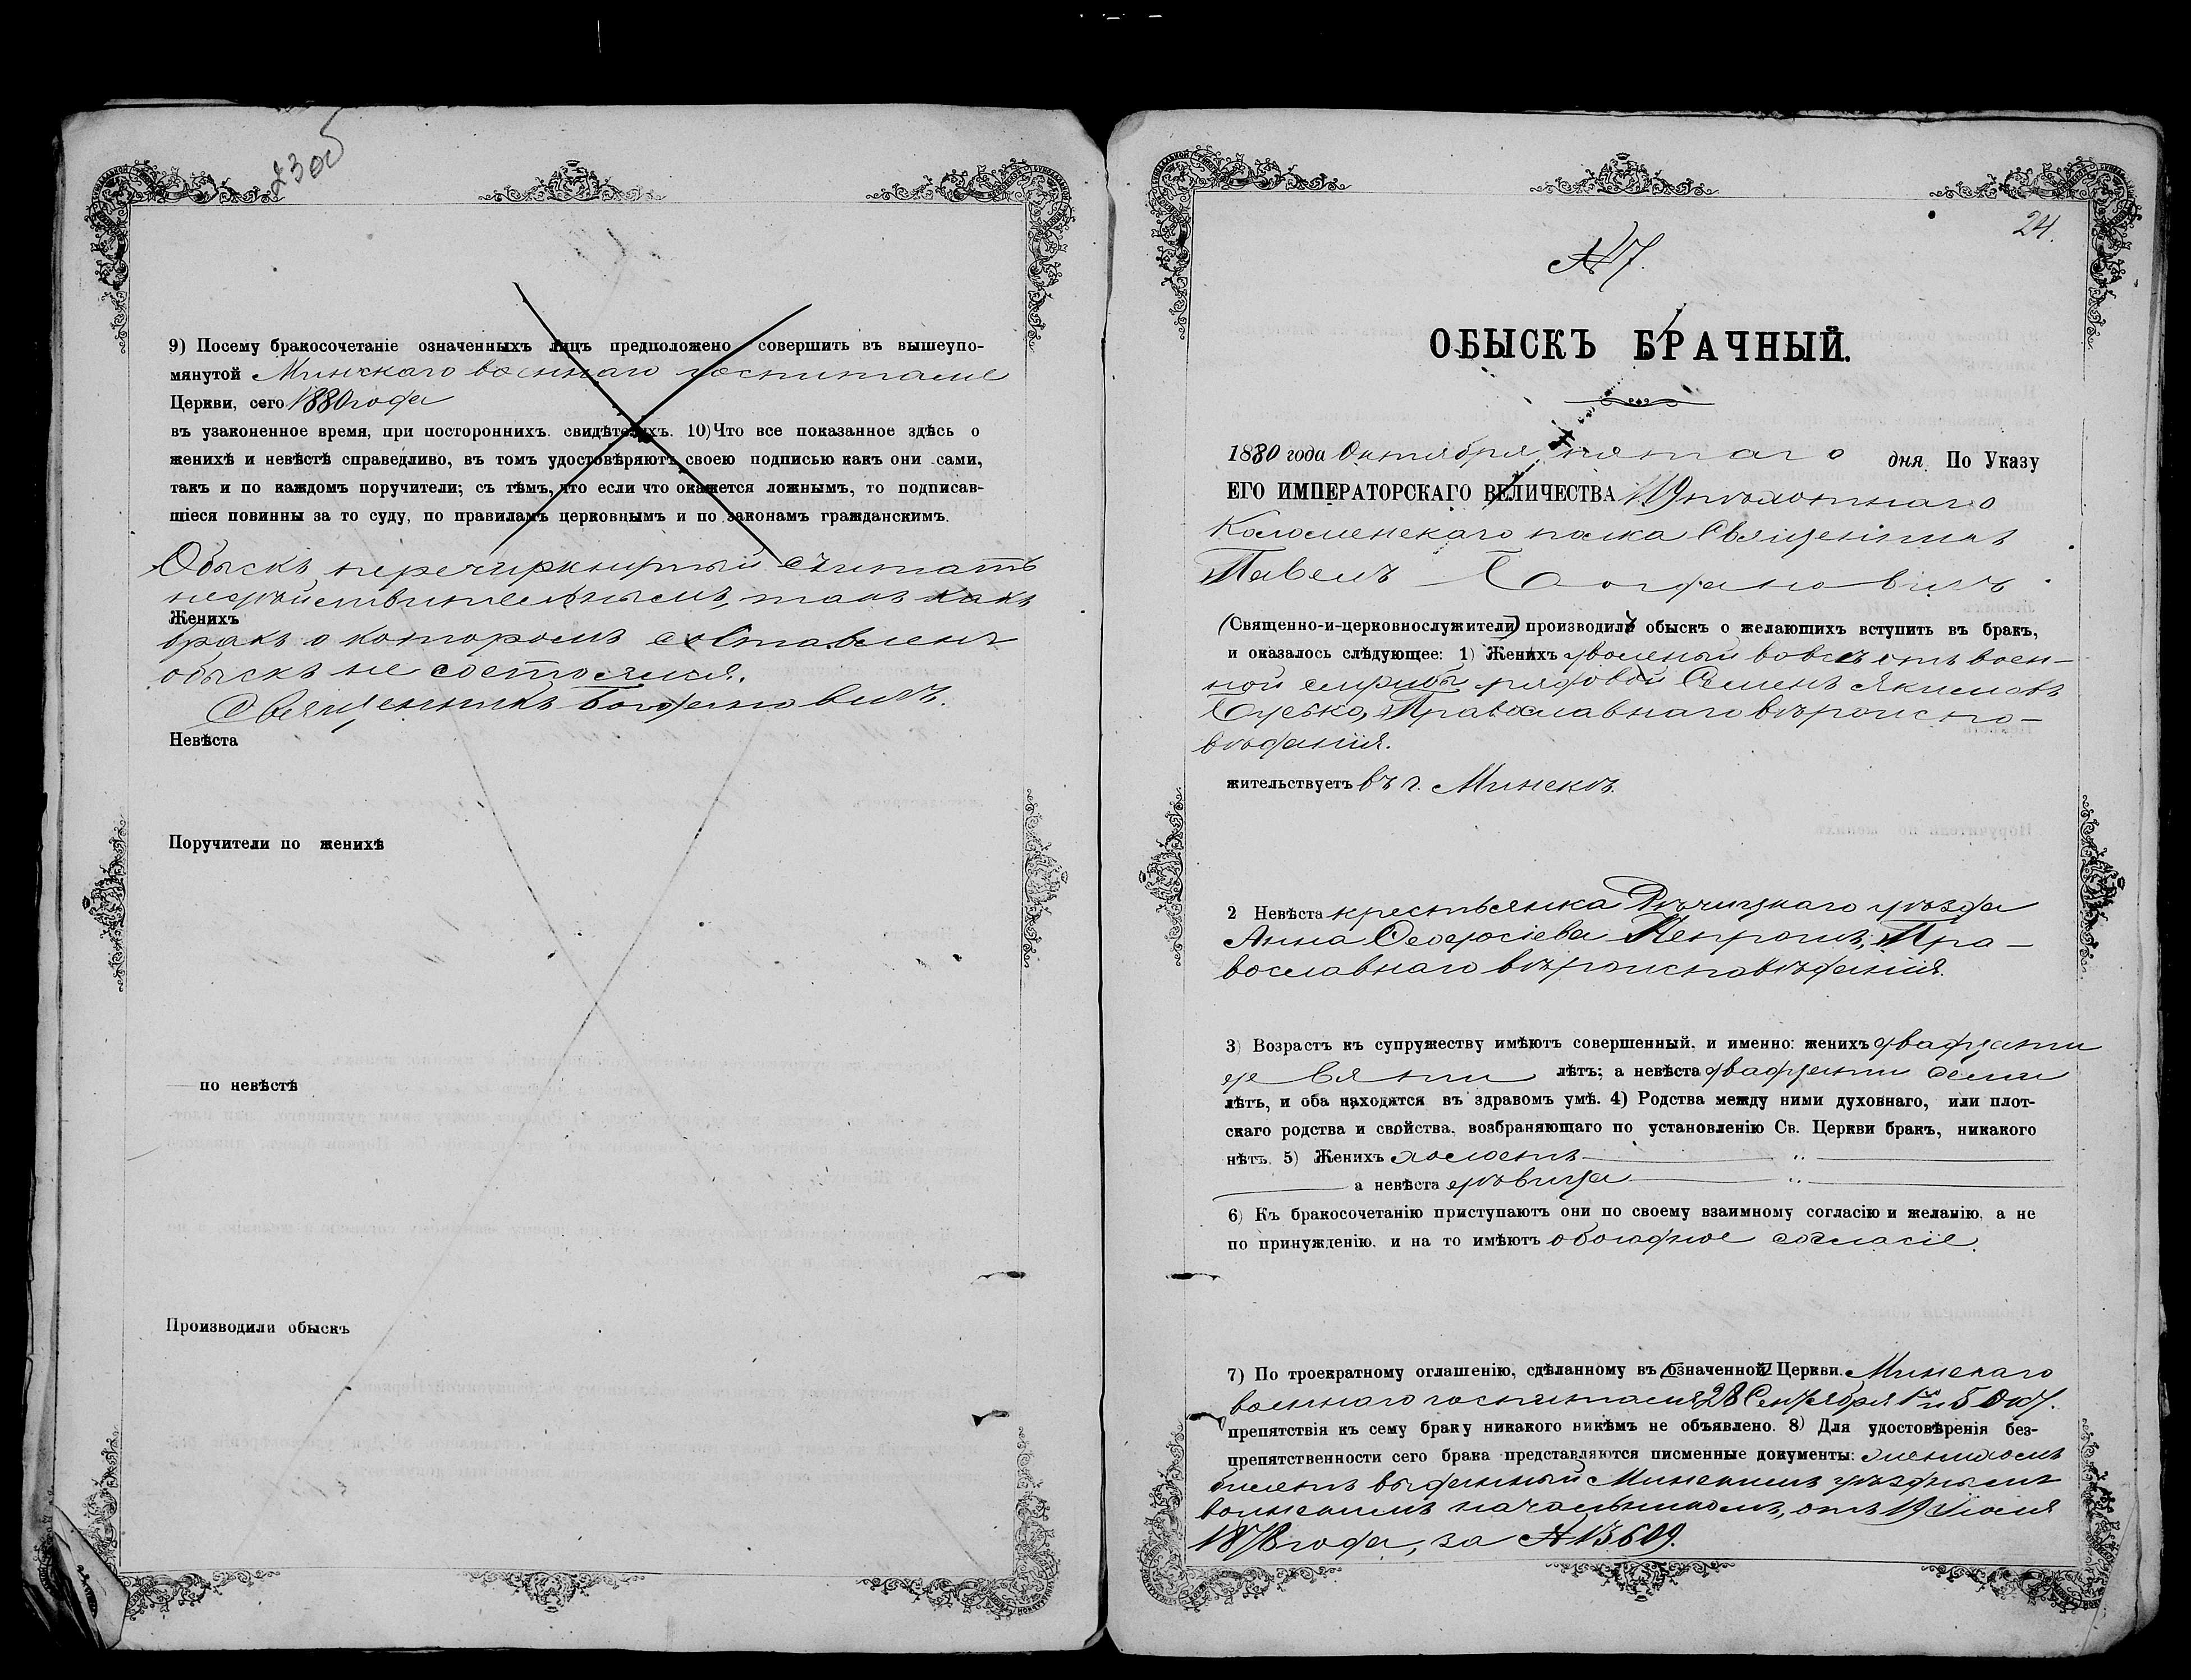 23 об
9) Посему бракосочетаніе означенныхъ лицъ предположено совершить въ вышеупо-
мянутой Минскаго военнаго госпиталя
Церкви, сего 1880 года
въ узаконенное время, при постороннихъ свидѣтеляхъ. 10) Что все показанное здѣсь о
женихѣ и невѣстѣ справедливо, въ томъ удостовѣряютъ своею подписью какъ они сами,
такъ и по каждомъ поручители; съ тѣмъ, что если что окажется ложнымъ, то подписав-
шіеся повинны за то суду, по правиламъ церковнымъ и по законамъ гражданскимъ.
Обыскъ перечиркнутый считать
недѣйствительнымъ, такъ какъ
Женихъ
бракъ о которомъ составленъ
обыскъ не состоялся.
Священникъ Богдановичъ.
Невѣста
Поручители по женихѣ
по невѣстѣ
Производили обыскъ
24.
№ 7.
ОБЫСКЪ БРАЧНЫЙ.
1880 года Октября пятаго дня. По Указу
ЕГО ИМПЕРАТОРСКАГО ВЕЛИЧЕСТВА 119 пѣхотнаго
Коломенскаго полка Священникъ
Павелъ Богдановичъ
(Священно-и-церковнослужители) производилъ обыскъ о желающихъ вступить въ бракъ,
и оказалось слѣдующее: 1) Женихъ уволеный вовсе отъ воен-
ной службы рядовой Семенъ Якимовъ
Православнаго вѣроиспо-
вѣданія.
жительствуетъ въ г. Минскѣ.
2 Невѣста крестьянка Рѣчицкаго уѣзда
Анна Ѳеодосіева Пра-
вославнаго вѣроисповѣданія.
3) Возрастъ къ супружеству имѣютъ совершенный, и именно: женихъ двадцати
девяти лѣтъ; а невѣста двадцати семи
лѣтъ, и оба находятся въ здравомъ умѣ. 4) Родства между ними духовнаго, или плот-
скаго родства и свойства, возбраняющаго по установленію Св. Церкви бракъ, никакого
нѣтъ. 5) Женихъ холостъ
а невѣста дѣвица
6) Къ бракосочетанію приступаютъ они по своему взаимному согласію и желанію, а не
по принужденію, и на то имѣютъ обоюдное согласіе.
7) По троекратному оглашенію, сдѣланному въ означенной Церкви Минскаго
военнаго госпиталя 28 Сентября 1 и 5 Окт.
препятствія къ сему браку никакого никѣмъ не объявлено. 8) Для удостовѣренія без-
препятственности сего брака представляются писменные документы:
билетъ выданный Минскимъ уѣзднымъ
воинскимъ начальникомъ, отъ 19 Іюля
1878 года, за № 13609.